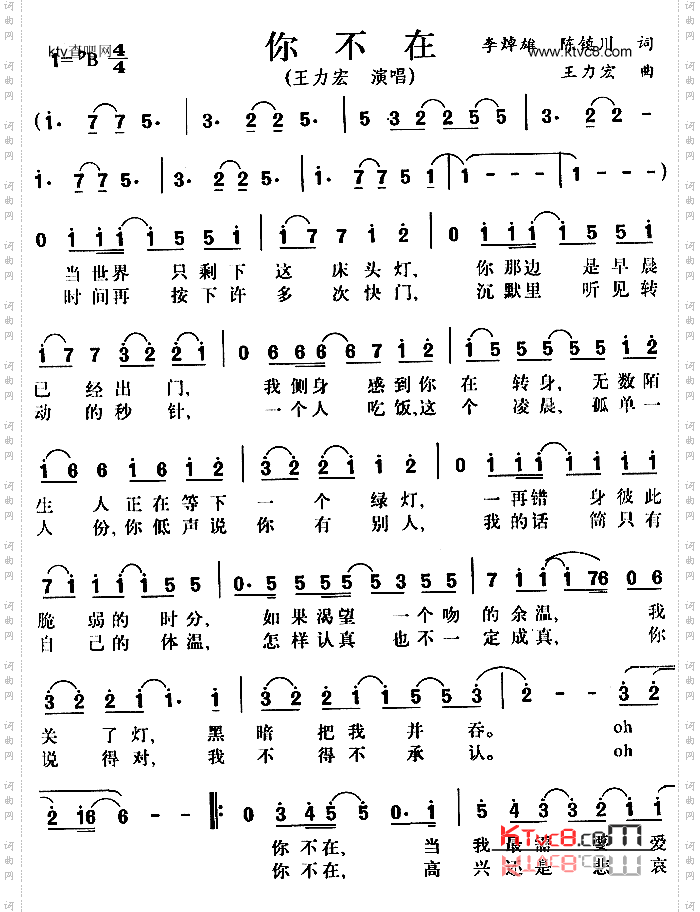 你 不 在
ktv查吧网
www.ktvc8.com
1=♭B 4/4
李焯雄 陈镇川 词
(王力宏 演唱)
王力宏 曲
(i· 7 7 5· | 3· 2 2 5· | 5 3 2 2 5 5 | 3· 2 2 -
i· 7 7 5· | 3· 2 2 5· | i· 7 7 5 i | i - - - )
0 i i i i 5 5 i | i 7 7 i 2 | 0 i i i i 5 5 i
当世界 只剩下 这 床头灯, 你那边 是早晨
时间再 按下许 多 次快门, 沉默里 听见转
i 7 7 3 2 2 i | 0 6 6 6 6 7 i 2 | i 5 5 5 5 5 i 2
已 经出 门, 我侧身 感到你 在 转身, 无数陌
动 的秒 针, 一个人 吃饭,这 个 凌晨, 孤单一
i 6 6 i 6 i 2 | 3 2 2 i i 2 | 0 i i i i 5 5 i
生 人正在等下 一 个 绿灯, 一再错 身彼此
人 份,你低声说 你 有 别人, 我的话 筒只有
7 i i i i 5 5 | 0· 5 5 5 5 5 3 5 5 | 7 i i i 76 0 6
脆 弱的 时分, 如果渴望 一个吻 的余温, 我
自 己的 体温, 怎样认真 也不一 定成真, 你
3 2 2 i i· i | 3 2 2 i i 3 | 2 - - 3 2
关 了灯, 黑暗把我 并 吞。 oh
说 得对, 我 不 得不 承 认。 oh
2 i6 6 - - ‖: 0 3 4 5 5 0· i | 5 4 3 3 2 i i
你不在, 当 我最需要 爱
你不在, 高 兴还是悲 哀
KTvc8.com
词曲网